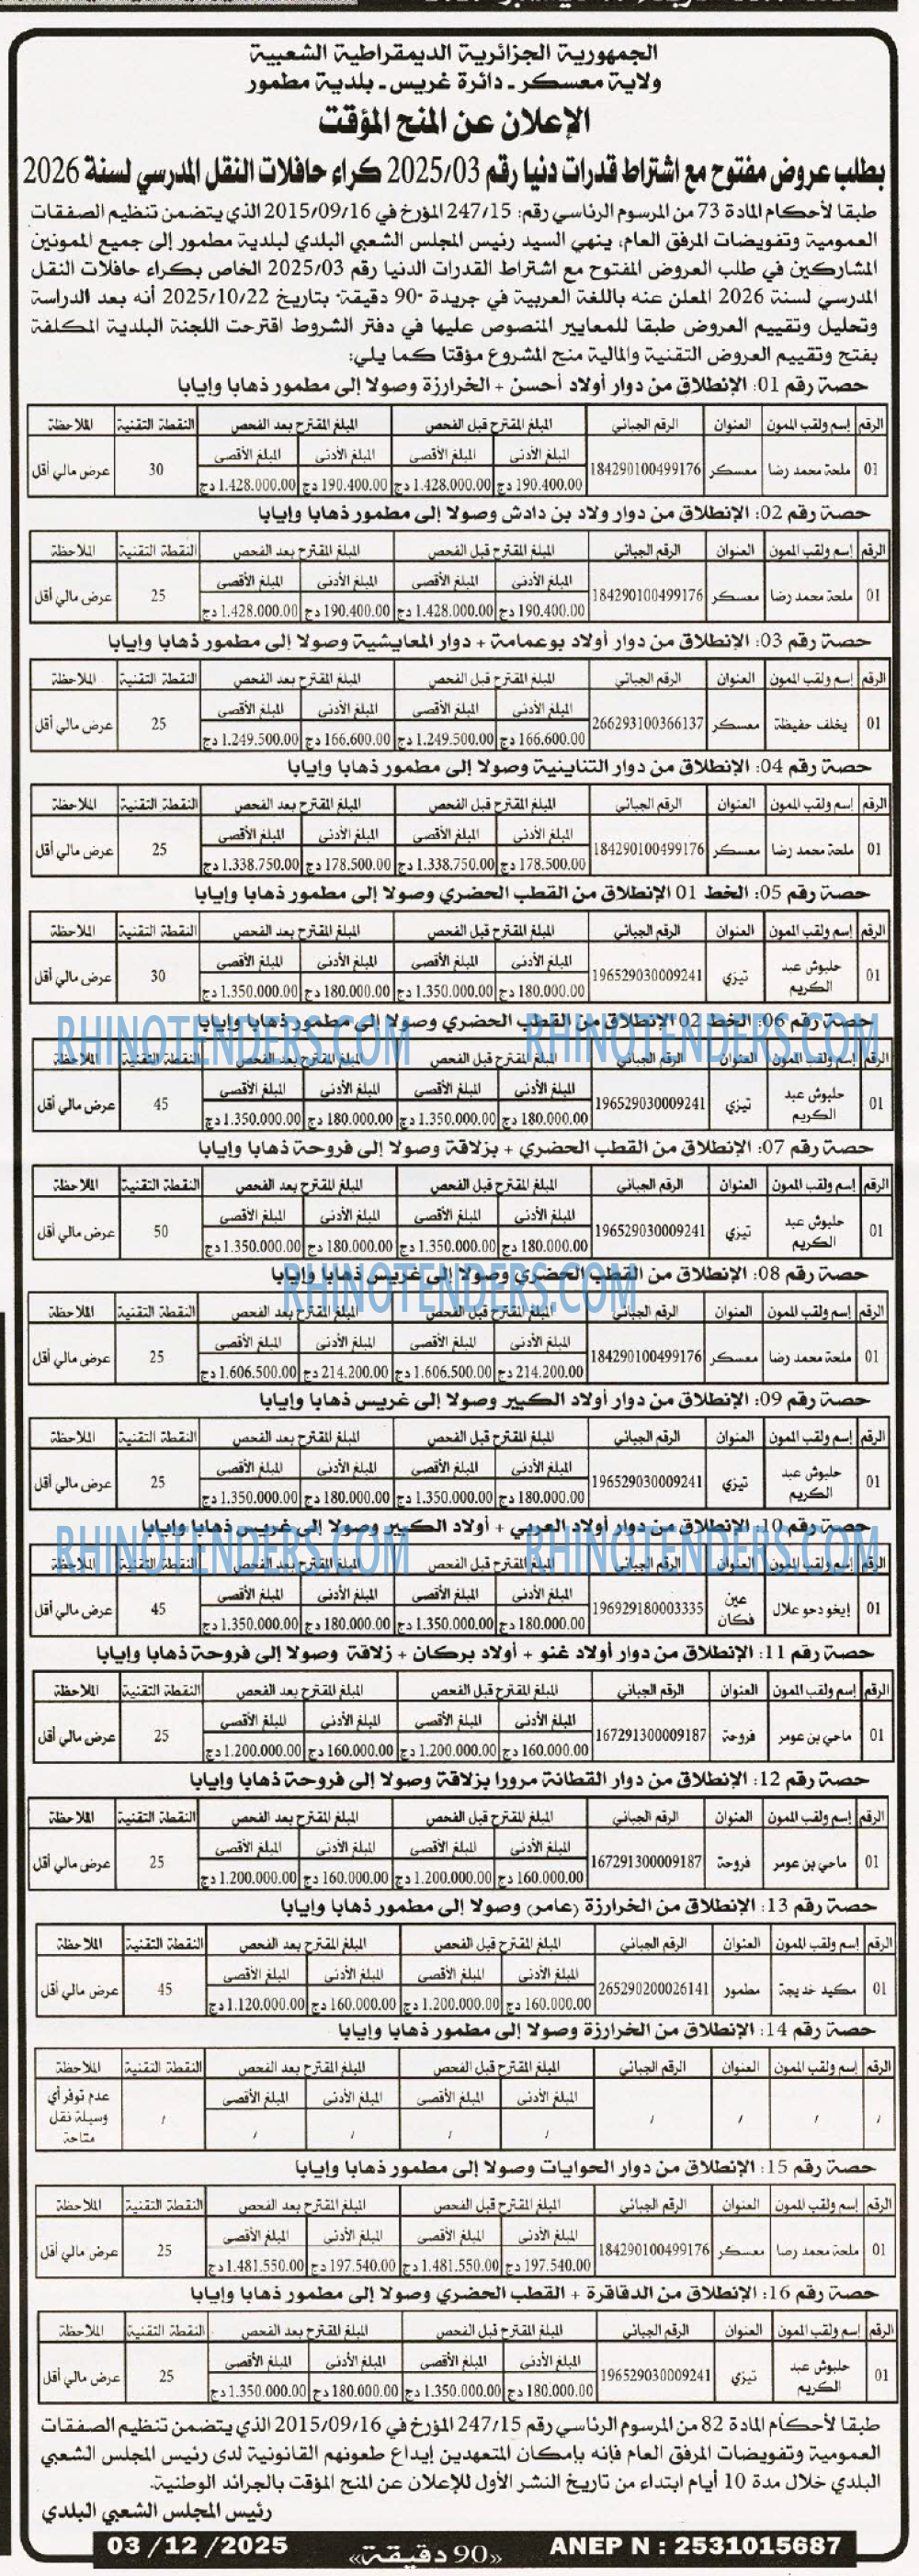 الجمهورية الجزائرية الديمقراطية الشعبية
ولاية معسكر ـ دائرة غريس ـ بلدية مطمور
الإعلان عن المنح المؤقت
بطلب عروض مفتوح مع اشتراط قدرات دنيا رقم 2025/03 كراء حافلات النقل المدرسي لسنة 2026
طبقا لأحكام المادة 73 من المرسوم الرئاسي رقم: 247/15 المؤرخ في 2015/09/16 الذي يتضمن تنظيم الصفقات
العمومية وتفويضات المرفق العام، ينهي السيد رئيس المجلس الشعبي البلدي لبلدية مطمور إلى جميع الممونين
المشاركين في طلب العروض المفتوح مع اشتراط القدرات الدنيا رقم 2025/03 الخاص بكراء حافلات النقل
المدرسي لسنة 2026 المعلن عنه باللغة العربية في جريدة "90 دقيقة" بتاريخ 2025/10/22 أنه بعد الدراسة
وتحليل وتقييم العروض طبقا للمعايير المنصوص عليها في دفتر الشروط اقترحت اللجنة البلدية المكلفة
بفتح وتقييم العروض التقنية والمالية منح المشروع مؤقتا كما يلي:
حصة رقم 01: الإنطلاق من دوار أولاد أحسن + الخرارزة وصولا إلى مطمور ذهابا وإيابا
الرقم إسم ولقب الممون العنوان الرقم الجبائي المبلغ المقترح قبل الفحص المبلغ المقترح بعد الفحص النقطة التقنية الملاحظة
المبلغ الأدنى المبلغ الأقصى المبلغ الأدنى المبلغ الأقصى
01 ملحة محمد رضا معسكر 184290100499176 190.400.00 دج 1.428.000.00 دج 190.400.00 دج 1.428.000.00 دج 30 عرض مالي أقل
حصة رقم 02: الإنطلاق من دوار ولاد بن دادش وصولا إلى مطمور ذهابا وإيابا
الرقم إسم ولقب الممون العنوان الرقم الجبائي المبلغ المقترح قبل الفحص المبلغ المقترح بعد الفحص النقطة التقنية الملاحظة
المبلغ الأدنى المبلغ الأقصى المبلغ الأدنى المبلغ الأقصى
01 ملحة محمد رضا معسكر 184290100499176 190.400.00 دج 1.428.000.00 دج 190.400.00 دج 1.428.000.00 دج 25 عرض مالي أقل
حصة رقم 03: الإنطلاق من دوار أولاد بوعمامة + دوار المعايشية وصولا إلى مطمور ذهابا وإيابا
الرقم إسم ولقب الممون العنوان الرقم الجبائي المبلغ المقترح قبل الفحص المبلغ المقترح بعد الفحص النقطة التقنية الملاحظة
المبلغ الأدنى المبلغ الأقصى المبلغ الأدنى المبلغ الأقصى
01 يخلف حفيظة معسكر 266293100366137 166.600.00 دج 1.249.500.00 دج 166.600.00 دج 1.249.500.00 دج 25 عرض مالي أقل
حصة رقم 04: الإنطلاق من دوار التناينية وصولا إلى مطمور ذهابا وإيابا
الرقم إسم ولقب الممون العنوان الرقم الجبائي المبلغ المقترح قبل الفحص المبلغ المقترح بعد الفحص النقطة التقنية الملاحظة
المبلغ الأدنى المبلغ الأقصى المبلغ الأدنى المبلغ الأقصى
01 ملحة محمد رضا معسكر 184290100499176 178.500.00 دج 1.338.750.00 دج 178.500.00 دج 1.338.750.00 دج 25 عرض مالي أقل
حصة رقم 05: الخط 01 الإنطلاق من القطب الحضري وصولا إلى مطمور ذهابا وإيابا
الرقم إسم ولقب الممون العنوان الرقم الجبائي المبلغ المقترح قبل الفحص المبلغ المقترح بعد الفحص النقطة التقنية الملاحظة
المبلغ الأدنى المبلغ الأقصى المبلغ الأدنى المبلغ الأقصى
01 حلبوش عبد الكريم تيزي 196529030009241 180.000.00 دج 1.350.000.00 دج 180.000.00 دج 1.350.000.00 دج 30 عرض مالي أقل
حصة رقم 06: الخط 02 الإنطلاق من القطب الحضري وصولا إلى مطمور ذهابا وإيابا
RHINOTENDERS.COM RHINOTENDERS.COM
الرقم إسم ولقب الممون العنوان الرقم الجبائي المبلغ المقترح قبل الفحص المبلغ المقترح بعد الفحص النقطة التقنية الملاحظة
المبلغ الأدنى المبلغ الأقصى المبلغ الأدنى المبلغ الأقصى
01 حلبوش عبد الكريم تيزي 196529030009241 180.000.00 دج 1.350.000.00 دج 180.000.00 دج 1.350.000.00 دج 45 عرض مالي أقل
حصة رقم 07: الإنطلاق من القطب الحضري + بزلاقة وصولا إلى فروحة ذهابا وإيابا
الرقم إسم ولقب الممون العنوان الرقم الجبائي المبلغ المقترح قبل الفحص المبلغ المقترح بعد الفحص النقطة التقنية الملاحظة
المبلغ الأدنى المبلغ الأقصى المبلغ الأدنى المبلغ الأقصى
01 حلبوش عبد الكريم تيزي 196529030009241 180.000.00 دج 1.350.000.00 دج 180.000.00 دج 1.350.000.00 دج 50 عرض مالي أقل
حصة رقم 08: الإنطلاق من القطب الحضري وصولا إلى غريس ذهابا وإيابا
RHINOTENDERS.COM
الرقم إسم ولقب الممون العنوان الرقم الجبائي المبلغ المقترح قبل الفحص المبلغ المقترح بعد الفحص النقطة التقنية الملاحظة
المبلغ الأدنى المبلغ الأقصى المبلغ الأدنى المبلغ الأقصى
01 ملحة محمد رضا معسكر 184290100499176 214.200.00 دج 1.606.500.00 دج 214.200.00 دج 1.606.500.00 دج 25 عرض مالي أقل
حصة رقم 09: الإنطلاق من دوار أولاد الكبير وصولا إلى غريس ذهابا وإيابا
الرقم إسم ولقب الممون العنوان الرقم الجبائي المبلغ المقترح قبل الفحص المبلغ المقترح بعد الفحص النقطة التقنية الملاحظة
المبلغ الأدنى المبلغ الأقصى المبلغ الأدنى المبلغ الأقصى
01 حلبوش عبد الكريم تيزي 196529030009241 180.000.00 دج 1.350.000.00 دج 180.000.00 دج 1.350.000.00 دج 25 عرض مالي أقل
حصة رقم 10: الإنطلاق من دوار أولاد العربي + أولاد الكبير وصولا إلى غريس ذهابا وإيابا
RHINOTENDERS.COM RHINOTENDERS.COM
الرقم إسم ولقب الممون العنوان الرقم الجبائي المبلغ المقترح قبل الفحص المبلغ المقترح بعد الفحص النقطة التقنية الملاحظة
المبلغ الأدنى المبلغ الأقصى المبلغ الأدنى المبلغ الأقصى
01 إيخو دحو علال عين فكان 196929180003335 180.000.00 دج 1.350.000.00 دج 180.000.00 دج 1.350.000.00 دج 45 عرض مالي أقل
حصة رقم 11: الإنطلاق من دوار أولاد غنو + أولاد بركان + زلاقة وصولا إلى فروحة ذهابا وإيابا
الرقم إسم ولقب الممون العنوان الرقم الجبائي المبلغ المقترح قبل الفحص المبلغ المقترح بعد الفحص النقطة التقنية الملاحظة
المبلغ الأدنى المبلغ الأقصى المبلغ الأدنى المبلغ الأقصى
01 ماحي بن عومر فروحة 167291300009187 160.000.00 دج 1.200.000.00 دج 160.000.00 دج 1.200.000.00 دج 25 عرض مالي أقل
حصة رقم 12: الإنطلاق من دوار القطانة مرورا بزلاقة وصولا إلى فروحة ذهابا وإيابا
الرقم إسم ولقب الممون العنوان الرقم الجبائي المبلغ المقترح قبل الفحص المبلغ المقترح بعد الفحص النقطة التقنية الملاحظة
المبلغ الأدنى المبلغ الأقصى المبلغ الأدنى المبلغ الأقصى
01 ماحي بن عومر فروحة 167291300009187 160.000.00 دج 1.200.000.00 دج 160.000.00 دج 1.200.000.00 دج 25 عرض مالي أقل
حصة رقم 13: الإنطلاق من الخرارزة (عامر) وصولا إلى مطمور ذهابا وإيابا
الرقم إسم ولقب الممون العنوان الرقم الجبائي المبلغ المقترح قبل الفحص المبلغ المقترح بعد الفحص النقطة التقنية الملاحظة
المبلغ الأدنى المبلغ الأقصى المبلغ الأدنى المبلغ الأقصى
01 مكيد خديجة مطمور 265290200026141 160.000.00 دج 1.200.000.00 دج 160.000.00 دج 1.120.000.00 دج 45 عرض مالي أقل
حصة رقم 14: الإنطلاق من الخرارزة وصولا إلى مطمور ذهابا وإيابا
الرقم إسم ولقب الممون العنوان الرقم الجبائي المبلغ المقترح قبل الفحص المبلغ المقترح بعد الفحص النقطة التقنية الملاحظة
المبلغ الأدنى المبلغ الأقصى المبلغ الأدنى المبلغ الأقصى
/ / / / / / / / / عدم توفر أي وسيلة نقل متاحة
حصة رقم 15: الإنطلاق من دوار الحوايات وصولا إلى مطمور ذهابا وإيابا
الرقم إسم ولقب الممون العنوان الرقم الجبائي المبلغ المقترح قبل الفحص المبلغ المقترح بعد الفحص النقطة التقنية الملاحظة
المبلغ الأدنى المبلغ الأقصى المبلغ الأدنى المبلغ الأقصى
01 ملحة محمد رضا معسكر 184290100499176 197.540.00 دج 1.481.550.00 دج 197.540.00 دج 1.481.550.00 دج 25 عرض مالي أقل
حصة رقم 16: الإنطلاق من الدقاقرة + القطب الحضري وصولا إلى مطمور ذهابا وإيابا
الرقم إسم ولقب الممون العنوان الرقم الجبائي المبلغ المقترح قبل الفحص المبلغ المقترح بعد الفحص النقطة التقنية الملاحظة
المبلغ الأدنى المبلغ الأقصى المبلغ الأدنى المبلغ الأقصى
01 حلبوش عبد الكريم تيزي 196529030009241 180.000.00 دج 1.350.000.00 دج 180.000.00 دج 1.350.000.00 دج 25 عرض مالي أقل
طبقا لأحكام المادة 82 من المرسوم الرئاسي رقم 247/15 المؤرخ في 2015/09/16 الذي يتضمن تنظيم الصفقات
العمومية وتفويضات المرفق العام فإنه بإمكان المتعهدين إيداع طعونهم القانونية لدى رئيس المجلس الشعبي
البلدي خلال مدة 10 أيام ابتداء من تاريخ النشر الأول للإعلان عن المنح المؤقت بالجرائد الوطنية.
رئيس المجلس الشعبي البلدي
03 /12 /2025 «90 دقيقة» ANEP N : 2531015687